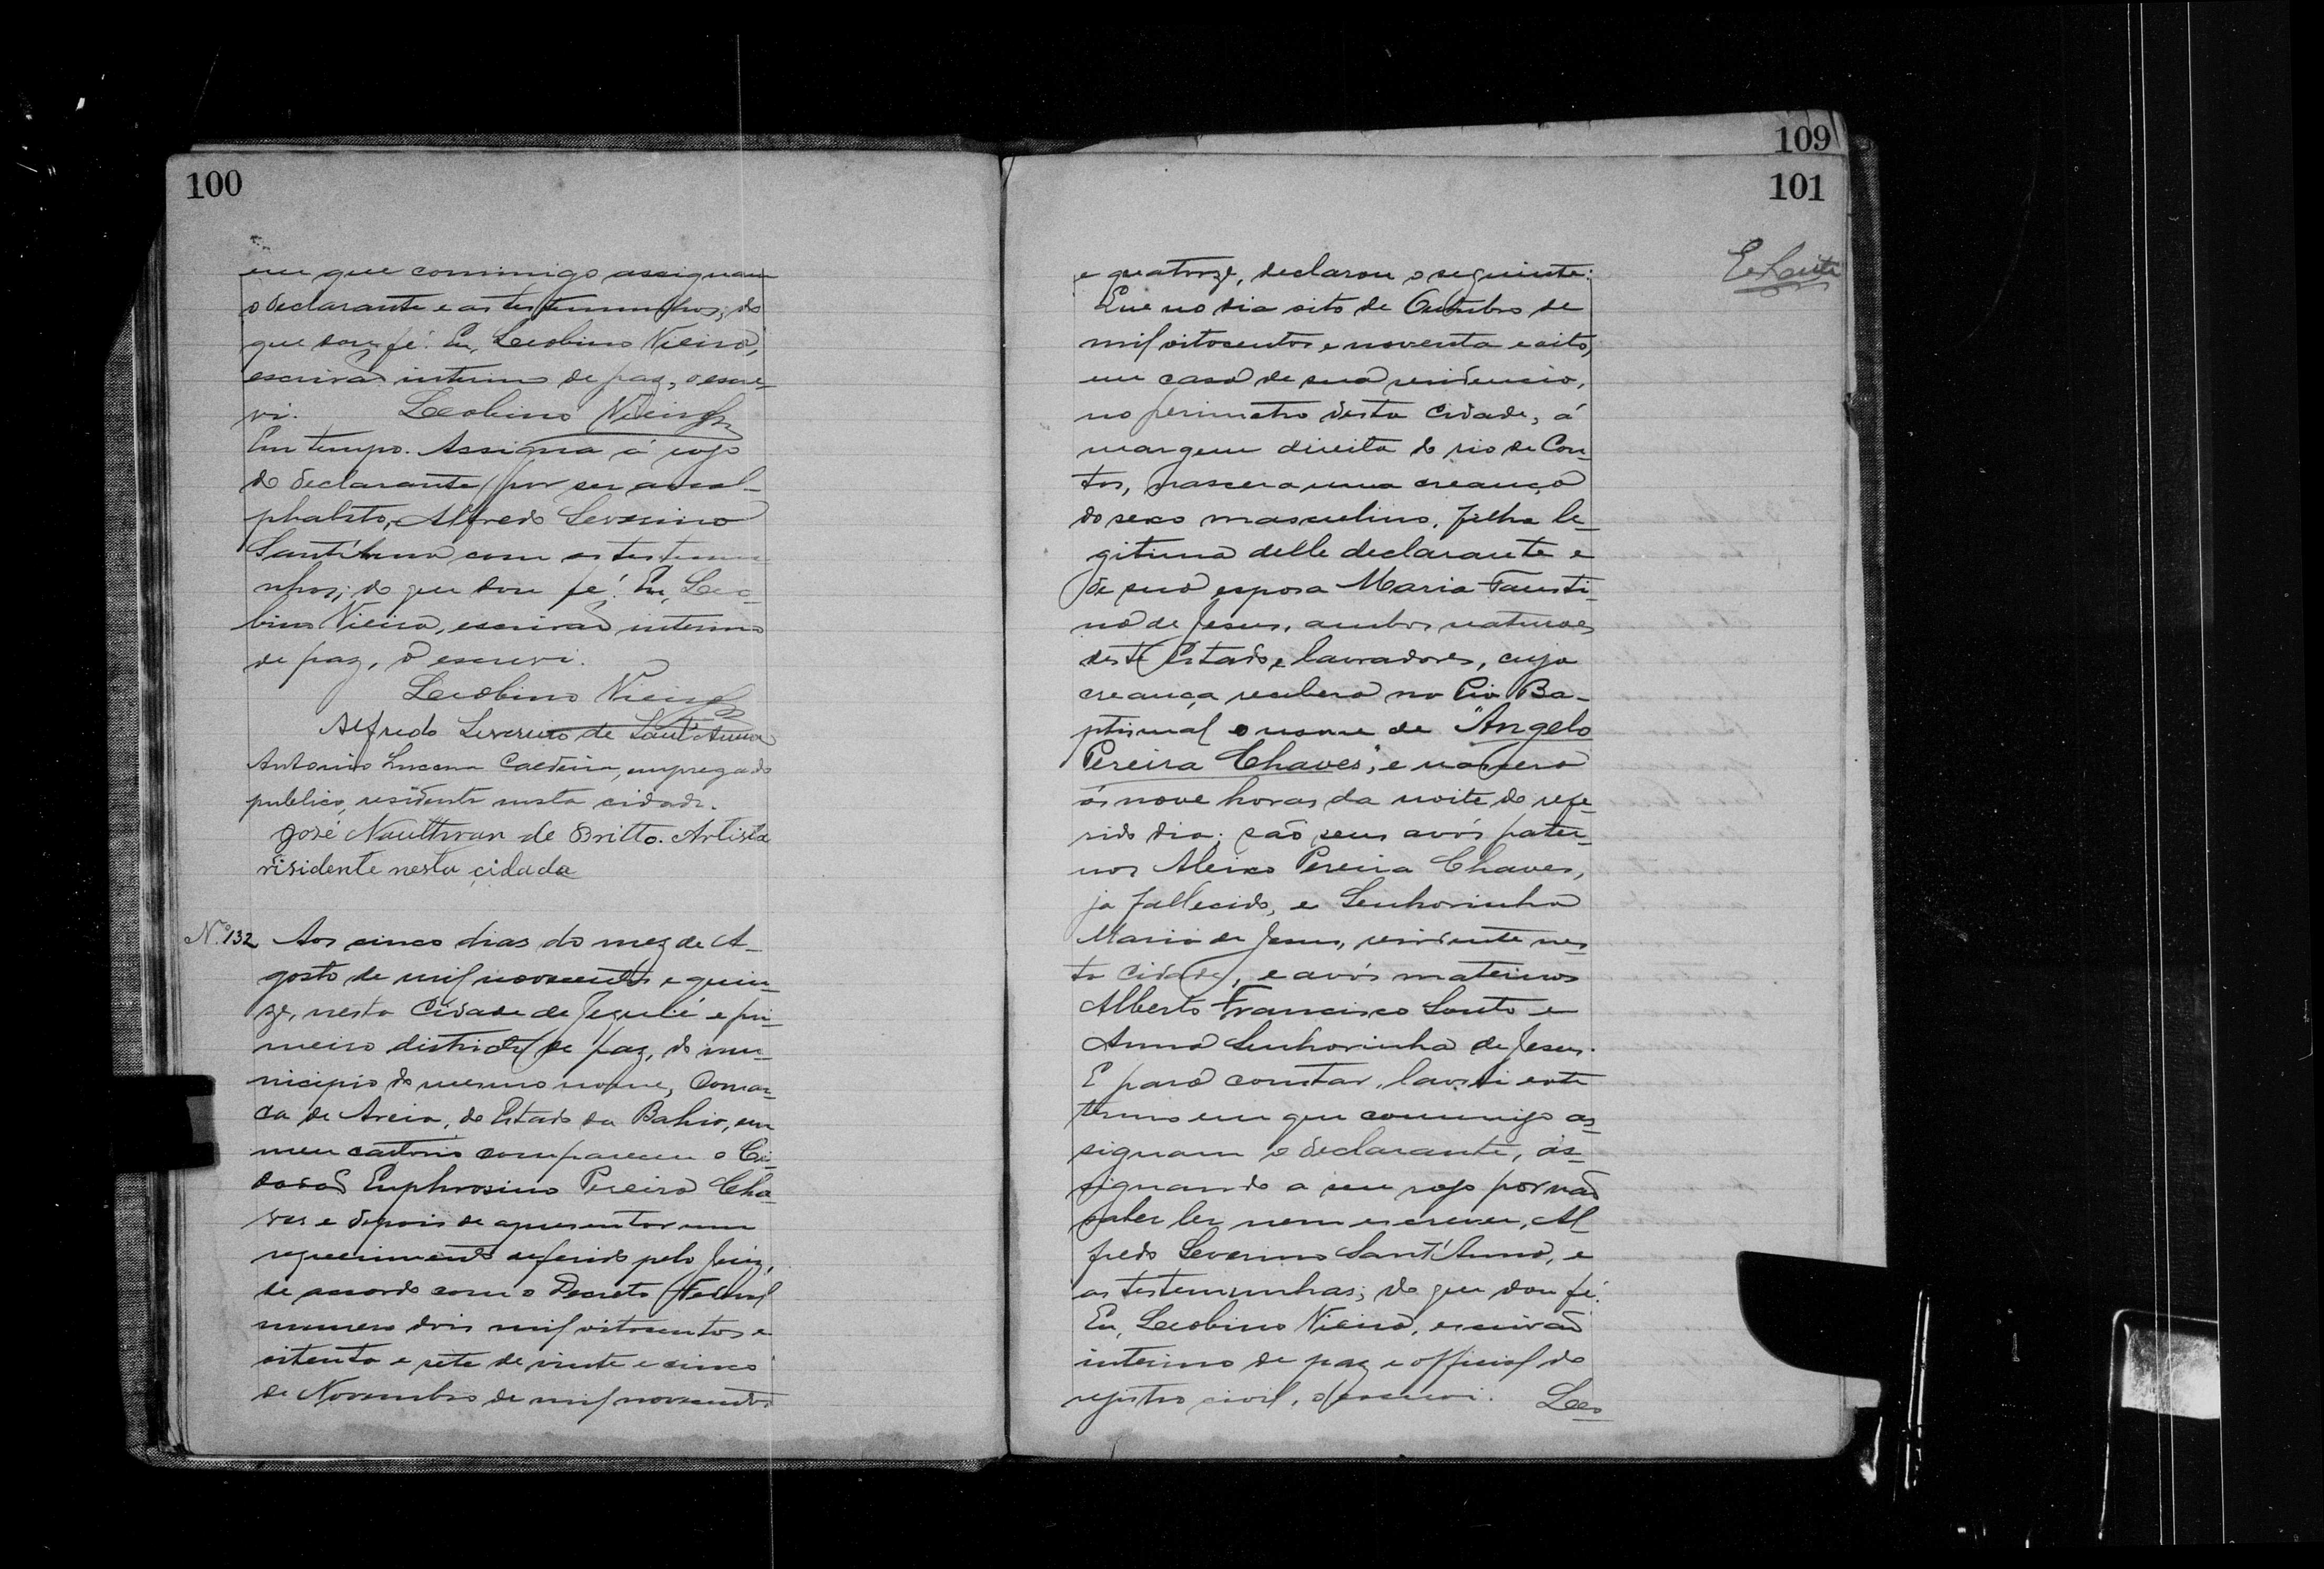 100
em que commigo assignam
o declarante e as testemunhas; do
que dou fé. Eu, Leobino Vieira,
escrivão interino de paz, o escre-
vi. Leobino Vieira
Em tempo. Assigna á rogo
do declarante por ser anal-
phabeto, Alfredo Severino
Sant'Anna com as testemu
nhas; do que dou fé. Eu, Leo-
bino Vieira, escrivão interino
de paz, o escrevi.
Leobino Vieira
Alfredo Severino de Sant'Anna
Antonio Lucena Caldeira, empregado
publico, residente nesta cidade.
José de Britto. Artista
risidente nesta cidade
N.º 132 Aos cinco dias do mez de A-
gosto de mil novecentos e quin-
ze, nesta Cidade de Jequié e pri-
meiro districto de paz, do mu-
nicipio do mesmo nome, Comar-
ca de Areia, do Estado da Bahia, em
meu cartorio compareceu o Ci-
dadão Euphrosino Pereira Cha-
ves e depois de apresentar um
requerimento deferido pelo Juiz,
de accordo com o Decreto Federal
numero dois mil oitocentos e
oitenta e sete de vinte e cinco
de Novembro de mil novecentos
109
101
e quatorze, declarou o seguinte:
Que no dia oito de Outubro de
mil oitocentos e noventa e oito,
em casa de sua residencia,
no perimetro desta Cidade, á
margem direita do rio de Con-
tas, nascera uma creança
do sexo masculino, filha le-
gitima delle declarante e
de sua esposa Maria Fausti-
na de Jesus, ambos naturaes
deste Estado e lavradores, cuja
creança recebera na Pia Ba-
ptismal o nome de "Angelo
Pereira Chaves", e nascera
ás nove horas da noite do refe-
rido dia; são seus avós pater-
nos Aleixo Pereira Chaves,
ja fallecido, e Senhorinha
Maria de Jesus, residente nes
ta Cidade, e avós maternos
Alberto Francisco Souto e
Anna Senhorinha de Jesus.
E para constar, lavrei este
termo em que commigo as-
signam o declarante, as-
signando a seu rogo por não
saber ler nem escrever, Al
fredo Severino Sant'Anna, e
as testemunhas; do que dou fé.
Eu, Leobino Vieira, escrivão
interino de paz e official do
registro civil, o escrevi. Leo